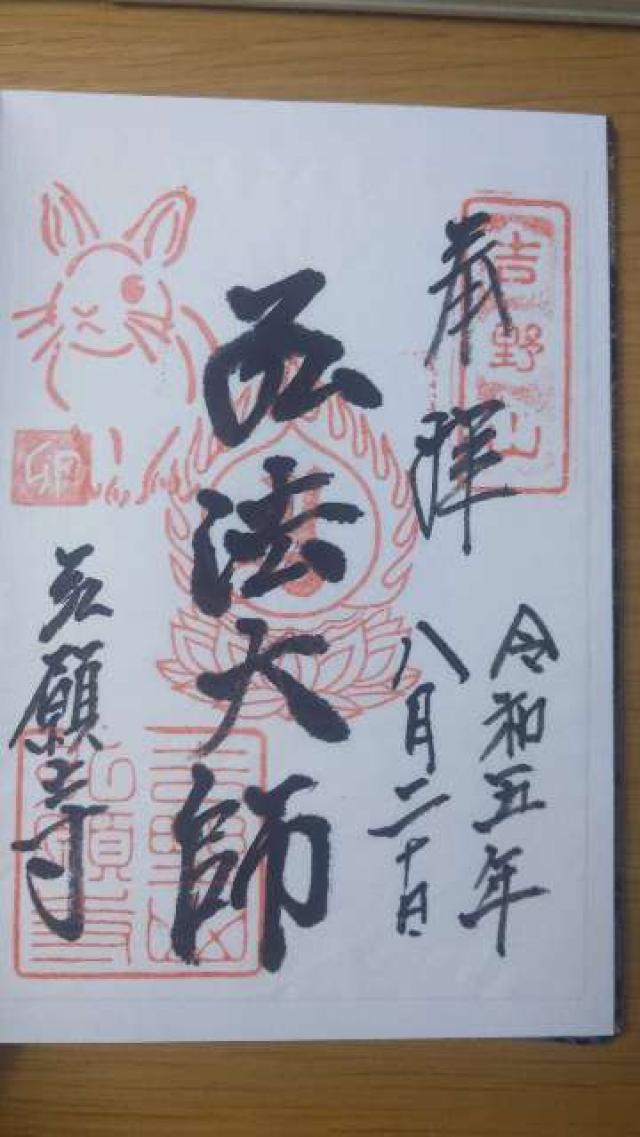 吉野山
奉拝
令和五年
八月二十日
弘法大師
卯
弘願寺
弘願寺